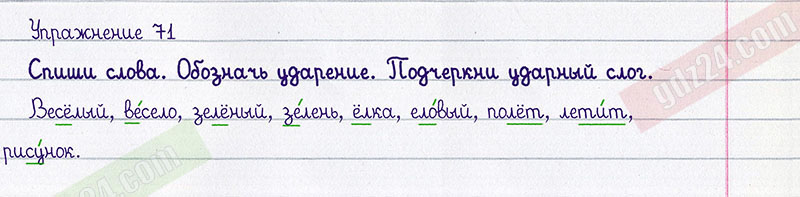 Упражнение 71
Спиши слова. Обозначь ударение. Подчеркни ударный слог.
Весёлый, ве́село, зелёный, зе́лень, ёлка, ело́вый, полёт, лети́т,
рису́нок.
gdz24.com
gdz24.com